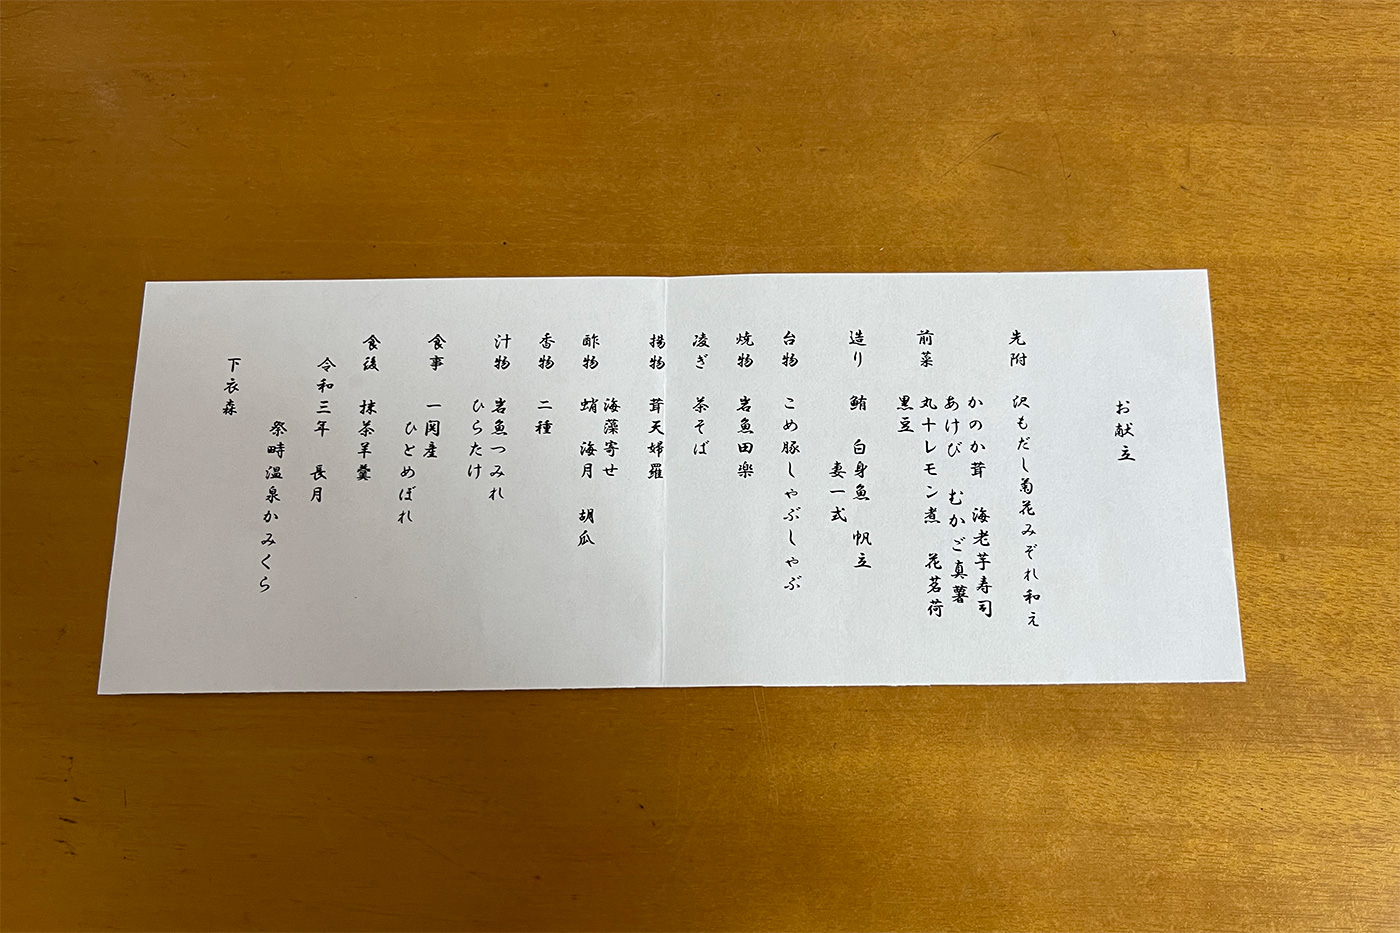 お献立
先附 沢もだし菊花みぞれ和え
かのか茸 海老芋寿司
前菜 あけび むかご真薯
丸十レモン煮 花茗荷
黒豆
造り 鮪 白身魚 帆立
妻一式
台物 こめ豚しゃぶしゃぶ
焼物 岩魚田楽
凌ぎ 茶そば
揚物 茸天婦羅
海藻寄せ
酢物 蛸 海月 胡瓜
香物 二種
汁物 岩魚つみれ
ひらたけ
食事 一関産
ひとめぼれ
食後 抹茶羊羹
令和三年 長月
祭畤温泉かみくら
下衣森